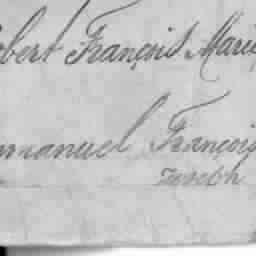 obert François Marie
mmanuel François
Joseph